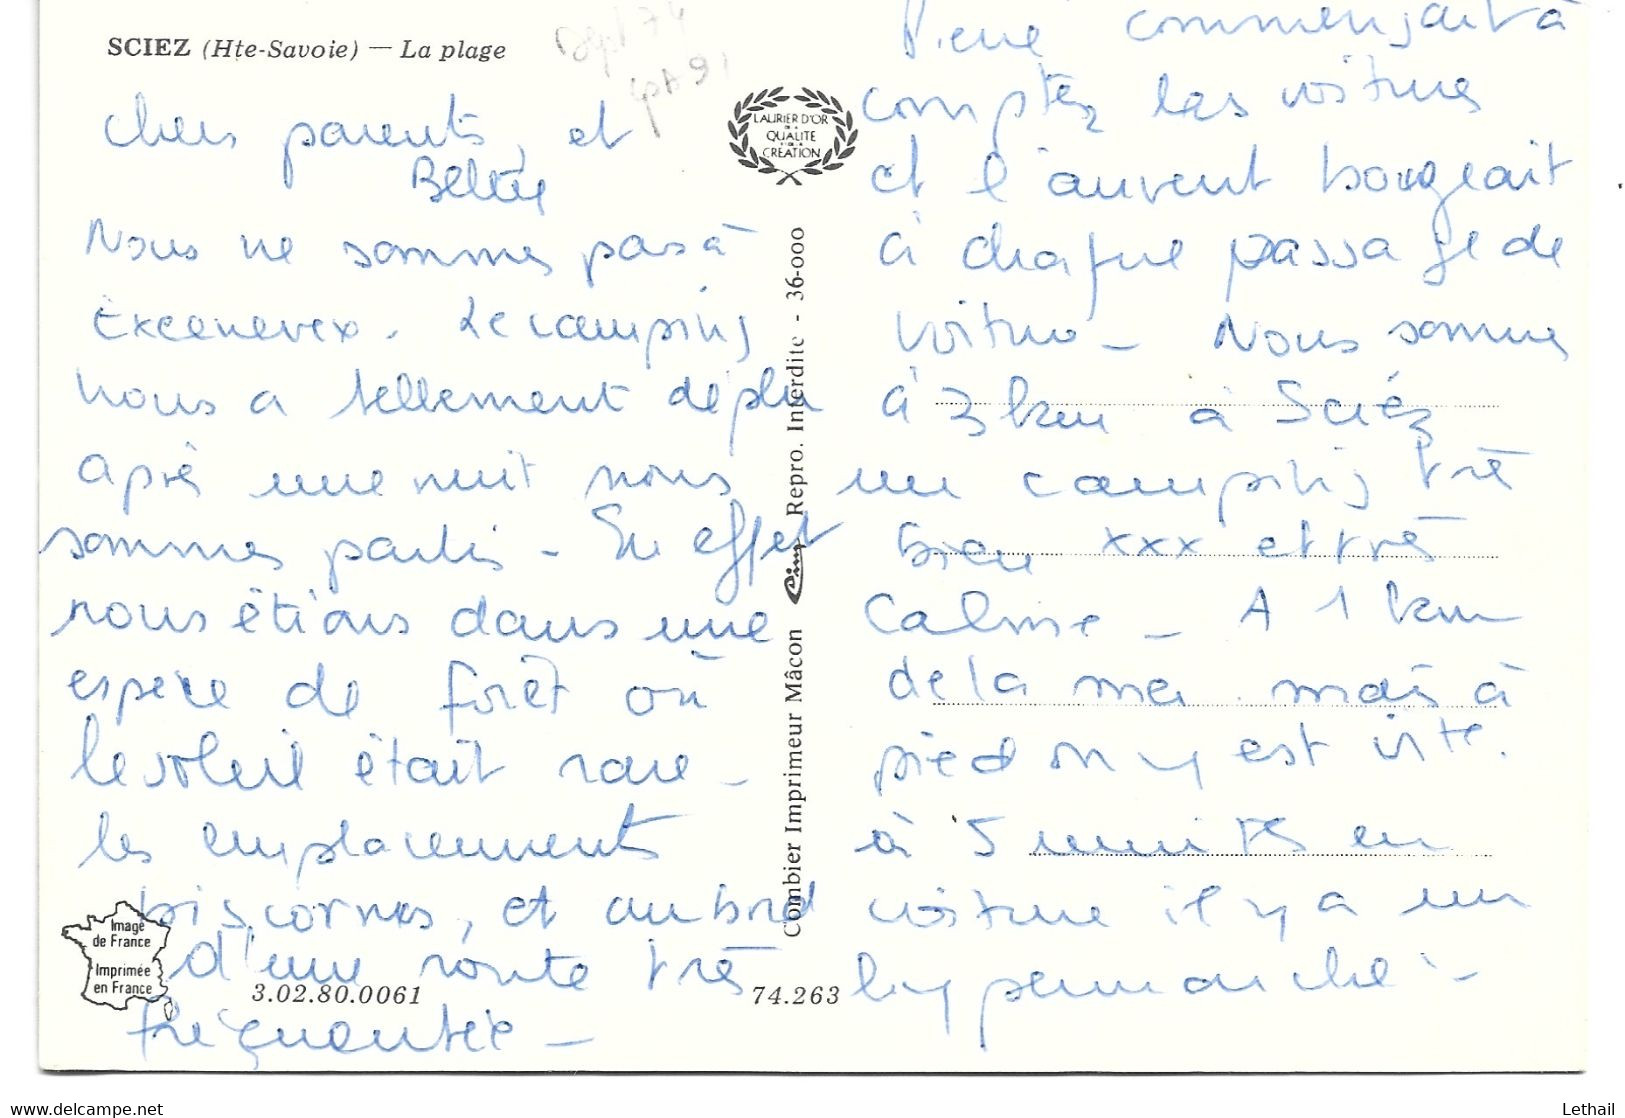 SCIEZ (Hte-Savoie) — La plage
Dept 74
LAURIER D'OR
DE LA
QUALITÉ
CRÉATION
chers parents, et
Nous ne sommes pas à
Excenevex. Le camping
nous a tellement déplu
après une nuit nous
sommes partis - En effet
nous étions dans une
espèce de forêt où
le soleil était rare -
les emplacements
biscornus, et au bord
d'une route très
fréquentée -
Image
de France
Imprimée
en France
3.02.80.0061
74.263
Combier Imprimeur Mâcon Cim Repro. Interdite - 36-000
commençait à
compter les voitures
et l'auvent bougeait
à chaque passage de
voiture - Nous sommes
à 3 km à Sciez
un camping très
bien xxx et très
calme - A 1 km
de la mer. mais à
pied on y est vite.
à 5 minutes en
voiture il y a un
hypermarché -
Lethail
www.delcampe.net